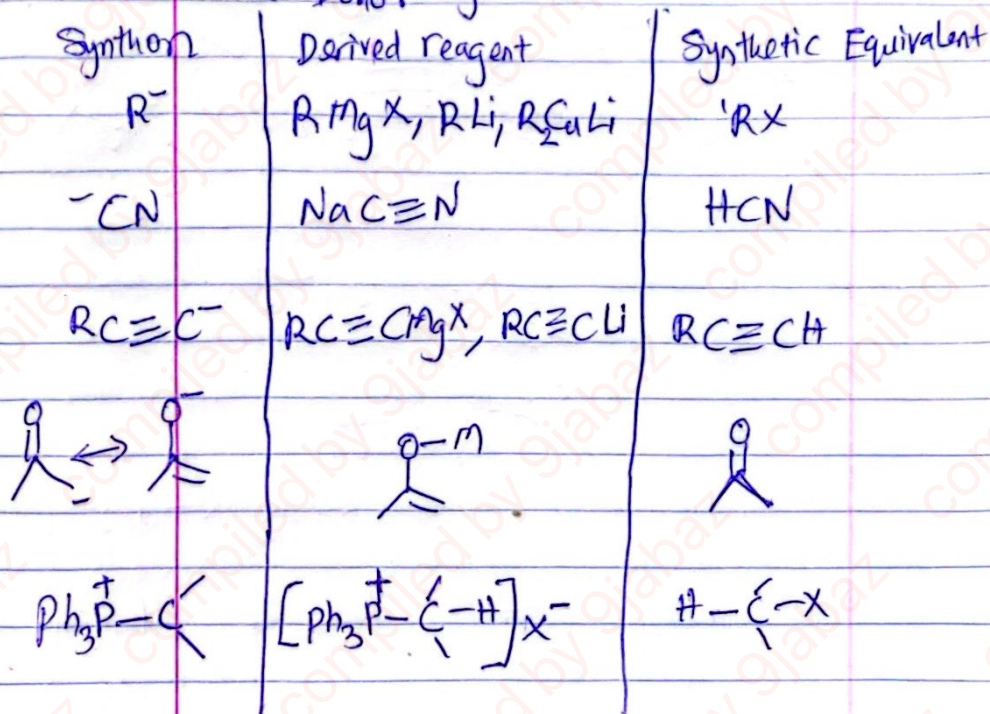 Synthon | Derived reagent | Synthetic Equivalent
R⁻ | RMgX, RLi, R₂CuLi | 'RX
⁻CN | NaC≡N | HCN
RC≡C⁻ | RC≡CMgX, RC≡CLi | RC≡CH
O ↔ O⁻ | O-M | O
Ph₃P⁺-C | [Ph₃P⁺-C-H]X⁻ | H-C-X
compiled by 9jabaz